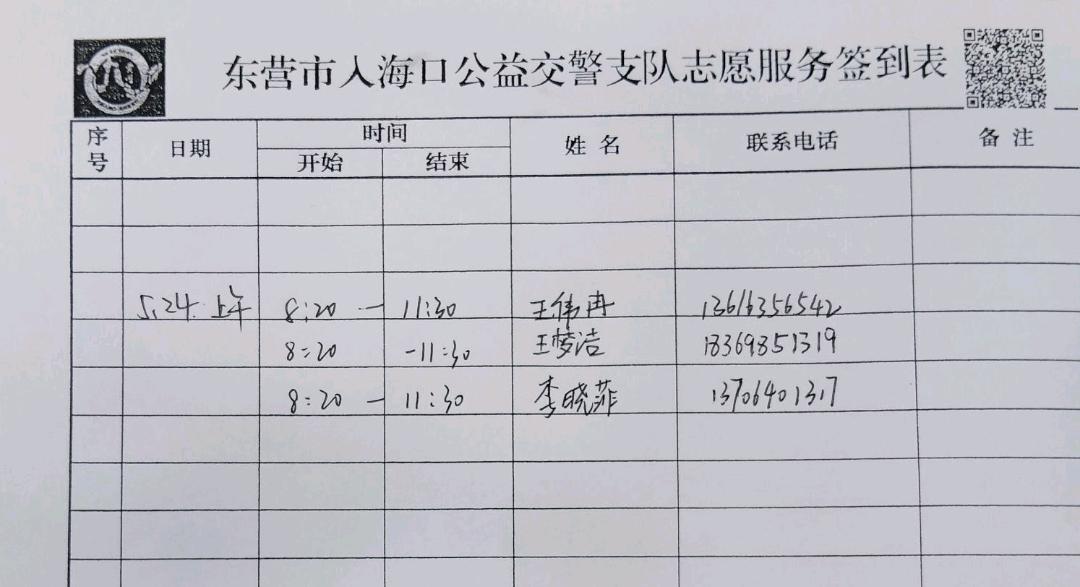 东营市入海口公益交警支队志愿服务签到表
序号 日期 时间 姓名 联系电话 备注
开始 结束
5.24.上午 8:20 — 11:30 王伟冉 13616356542
8:20 -11:30 王梦洁 18369851319
8:20 — 11:30 李晓菲 13706401317